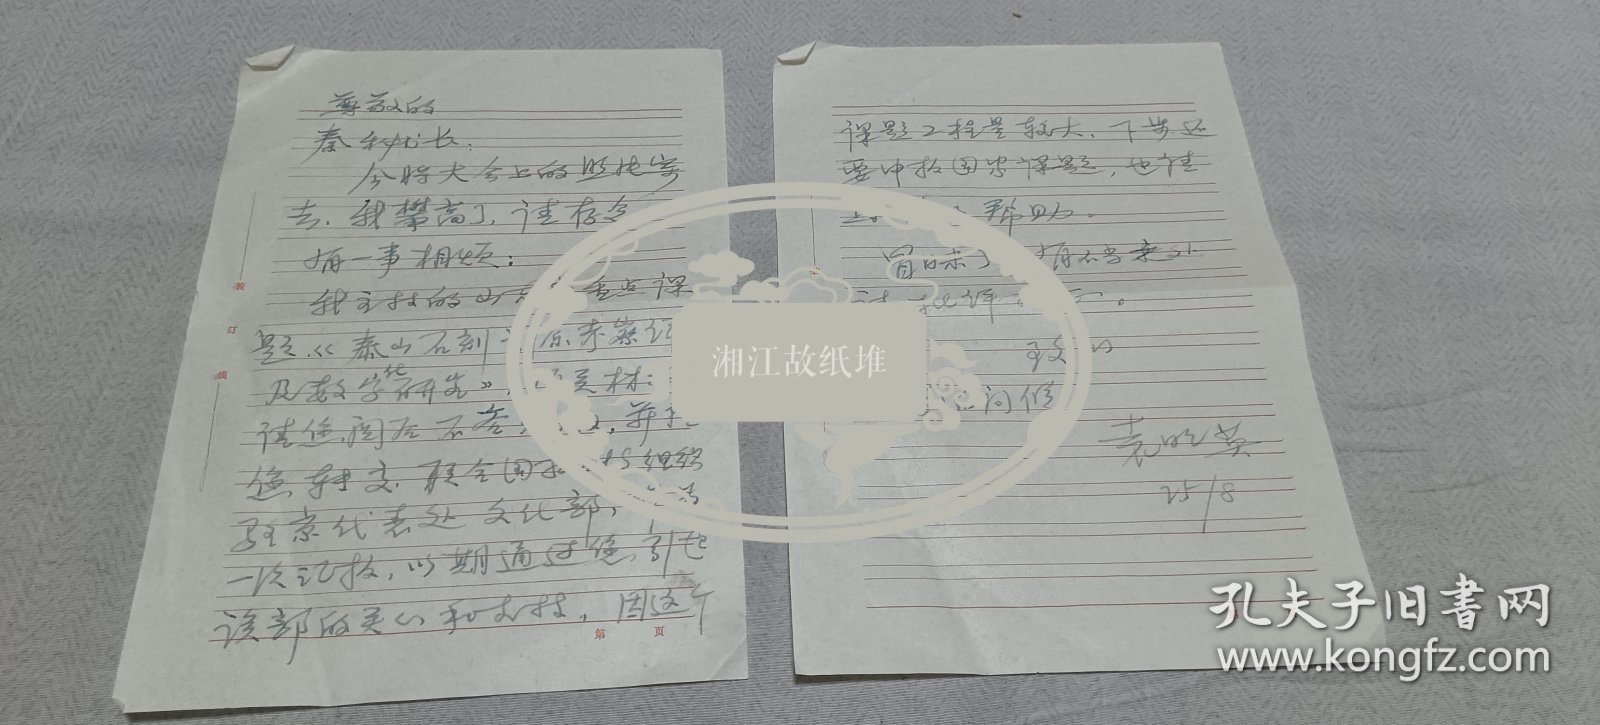 尊敬的
秦秘书长：
今将大会上的照片寄
去，我攀高了，请存念
有一事相烦：
我主持的山 重点课
题《泰山石刻 原考察
及数字化研究》， 关材
请您阅后 ，并
您转交联合国 组织
驻京代表处文化部，
一次汇报，以期通过您引起
该部的关心和支持，因这个
第 页
装
订
线
课题工程量较大，下步还
要申报国家课题，也请
帮助。
冒昧了 有不当之处
批评
致
问候
袁明英
25/8
湘江故纸堆
孔夫子旧书网
www.kongfz.com